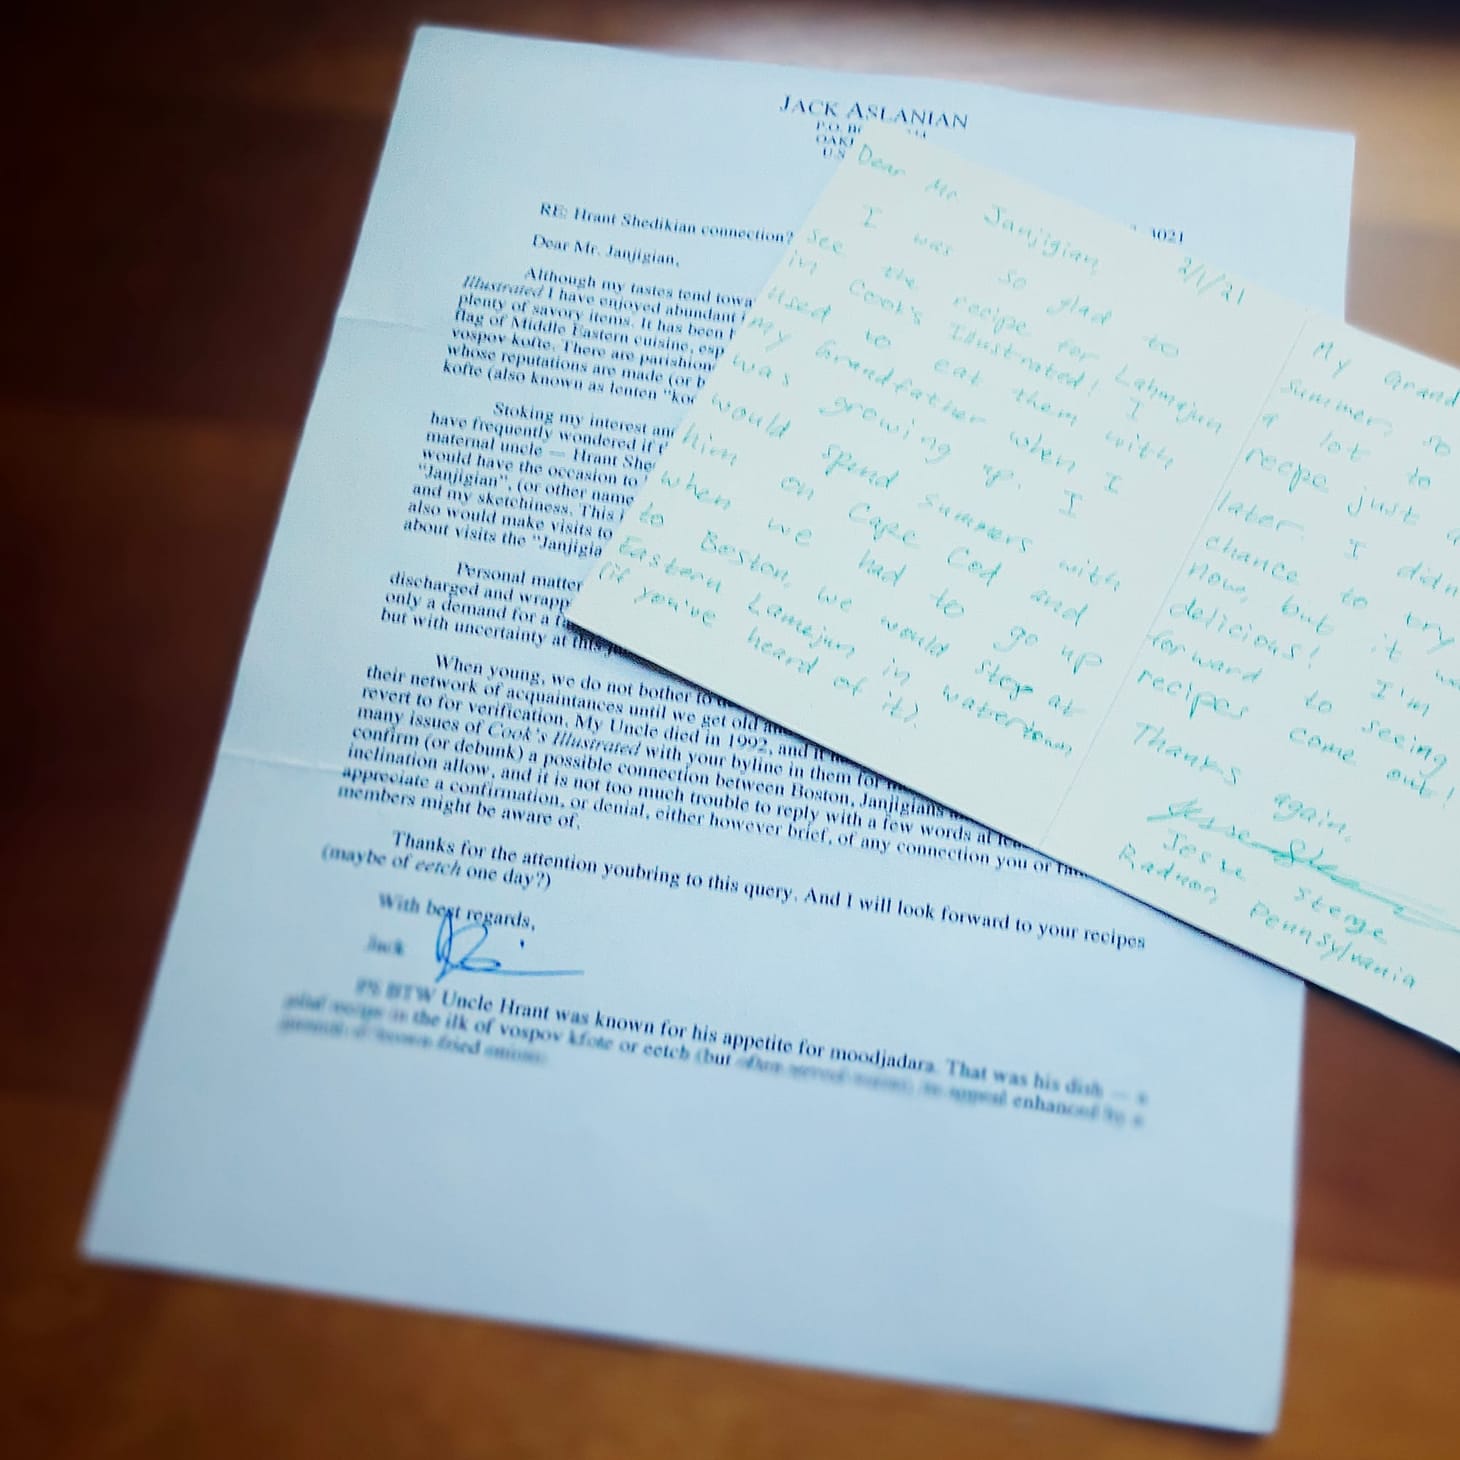 JACK ASLANIAN
P.O.
U.S
RE: Hrant Shedikian connection?
Dear Mr. Janjigian,
Although my tastes tend
Illustrated I have enjoyed abundant
plenty of savory items. It has been
flag of Middle Eastern cuisine,
vospov kofte. There are
whose reputations are made (or
kofte (also known as lenten
Stoking my interest
have frequently wondered if
maternal uncle — Hrant
would have the occasion to
"Janjigian", (or other
and my sketchiness. This
also would make visits to
about visits the
Personal
discharged and
only a demand for a
but with uncertainty at this
When young, we do not bother to
their network of acquaintances until we get old
revert to for verification. My Uncle died in 1992, and it
many issues of Cook's Illustrated with your byline in them for
confirm (or debunk) a possible connection between Boston, Janjigians
inclination allow, and it is not too much trouble to reply with a few words at
appreciate a confirmation, or denial, either however brief, of any connection you or
members might be aware of.
Thanks for the attention youbring to this query. And I will look forward to your recipes
(maybe of eetch one day?)
With best regards,
Jack
PS BTW Uncle Hrant was known for his appetite for moodjadara. That was his dish —
in the ilk of vospov kfote or eetch (but often served enhanced by
fried onions
Dear Mr Janjigian,
2/1/21
I was so glad to
see the recipe for Lahmajun
in Cook's Illustrated! I
used to eat them with
my Grandfather when I
was growing up. I
would spend summers with
him on Cape Cod and
when we had to go up
to Boston, we would stop at
Eastern Lamejun in Watertown
(if you've heard of it).
My
summer, so
a lot to
recipe just
later. I
chance to try
now, but it
delicious! I'm
forward to seeing
recipes come out!
Thanks again,
Jesse Sterge
Radnor, Pennsylvania